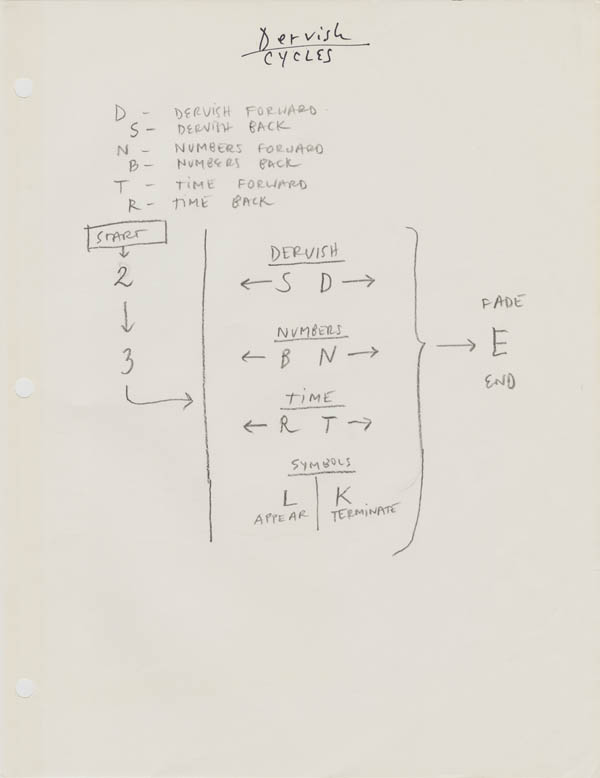 Dervish
CYCLES
D - DERVISH FORWARD
S - DERVISH BACK
N - NUMBERS FORWARD
B - NUMBERS BACK
T - TIME FORWARD
R - TIME BACK
START
2
3
DERVISH
← S D →
NUMBERS
← B N →
TIME
← R T →
SYMBOLS
L K
APPEAR TERMINATE
FADE
E
END